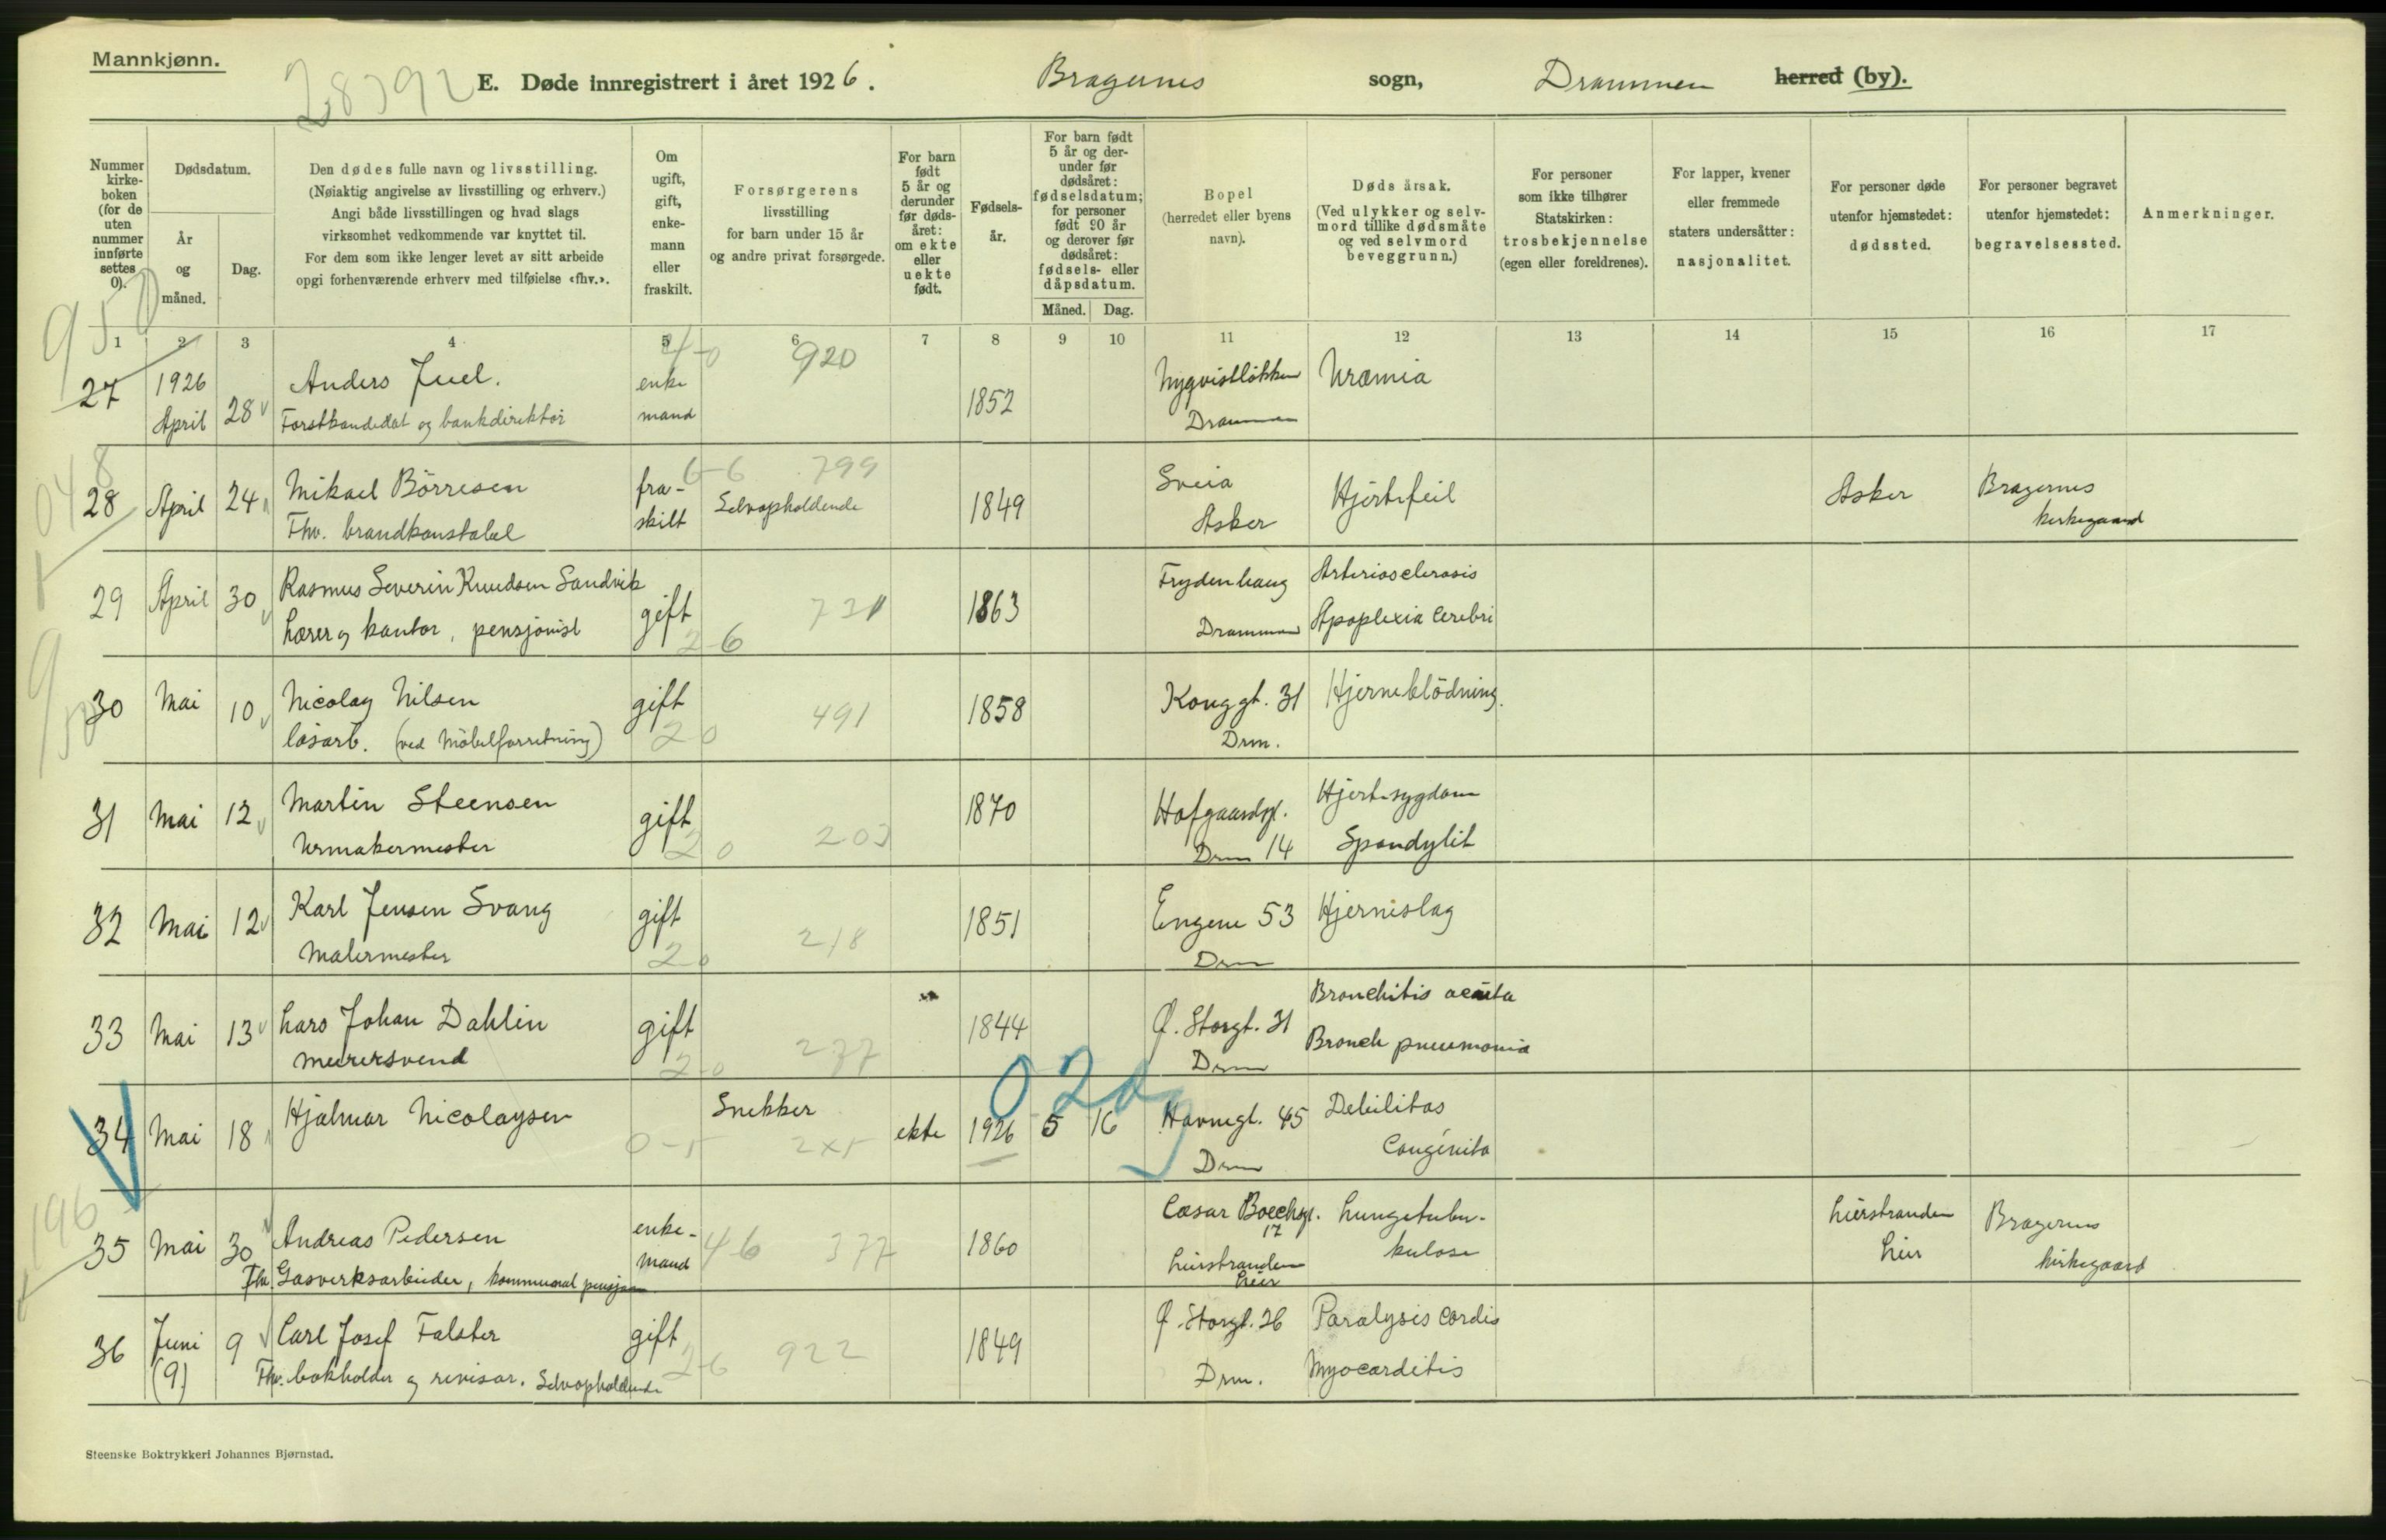 Mannkjønn.
28392
E. Døde innregistrert i året 1926. Bragernes sogn, Drammen herred (by).
Nummer kirke-boken (for de uten nummer innførte settes 0).
Dødsdatum.
År og måned.
Dag.
Den dødes fulle navn og livsstilling.
(Nøiaktig angivelse av livsstilling og erhverv.)
Angi både livsstillingen og hvad slags
virksomhet vedkommende var knyttet til.
For dem som ikke lenger levet av sitt arbeide
opgi forhenværende erhverv med tilføielse «fhv.».
Om ugift, gift, enke-mann eller fraskilt.
Forsørgerens
livsstilling
for barn under 15 år
og andre privat forsørgede.
For barn født 5 år og derunder før døds-året: om ekte eller uekte født.
Fødsels-år.
For barn født 5 år og der-under før dødsåret: fødselsdatum; for personer født 90 år og derover før dødsåret: fødsels- eller dåpsdatum.
Måned. Dag.
Bopel
(herredet eller byens
navn).
Døds årsak.
(Ved ulykker og selv-
mord tillike dødsmåte
og ved selvmord
beveggrunn.)
For personer
som ikke tilhører
Statskirken:
trosbekjennelse
(egen eller foreldrenes).
For lapper, kvener
eller fremmede
staters undersåtter:
nasjonalitet.
For personer døde
utenfor hjemstedet:
dødssted.
For personer begravet
utenfor hjemstedet:
begravelsessted.
Anmerkninger.
1 2 3 4 5 6 7 8 9 10 11 12 13 14 15 16 17
27 1926 April 28 Anders Juel. enke mand 920 1852 Nygvistløkken Drammen Uræmia
Forstkandidat og bankdirektør
28 April 24 Mikael Börresen fra-skilt 6-6 799 Selvopholdende 1849 Sveia Asker Hjertefeil Asker Bragernes kirkegaard
Fhv. brandkonstabel
29 April 30 Rasmus Severin Knudsen Sandvik gift 2-6 731 1863 Frydenhaug Drammen Arteriosclerosis Apoplexia Cerebri
Lærer og kantor, pensjonist
30 Mai 10 Nicolay Nilsen gift 20 491 1858 Konggt. 31 Drm. Hjerneblödning.
løsarb. (ved Möbelforretning)
31 Mai 12 Martin Steensen gift 20 203 1870 Hofgaardsgt. Drm 14 Hjertesygdom Spondylit
Urmakermester
32 Mai 12 Karl Jensen Svang gift 20 218 1851 Engene 53 Drm Hjerneslag
Malermester
33 Mai 13 Lars Johan Dahlin gift 2-0 237 1844 Ø. Storgt. 31 Drm Bronchitis acuta Bronch pneumonia
Murersvend
34 Mai 18 Hjalmar Nicolaysen Snekker ekte 1926 5 16 Havnegt. 45 Drm Debilitas Congenita
02d
35 Mai 30 Andreas Pedersen enke-mand 46 377 1860 Cæsar Boecksgt. 17 Lierstranden Lier Lungetuber-kulose Lierstranden Lier Bragernes kirkegaard
Fhv. Gasverksarbeider, kommunal pensjon
36 Juni (9) 9 Carl Josef Falster gift 2-6 922 1849 Ø. Storgt. 26 Drm. Paralysis cordis Myocarditis
Fhv. bokholder og revisor. Selvopholdende
Steenske Boktrykkeri Johannes Bjørnstad.